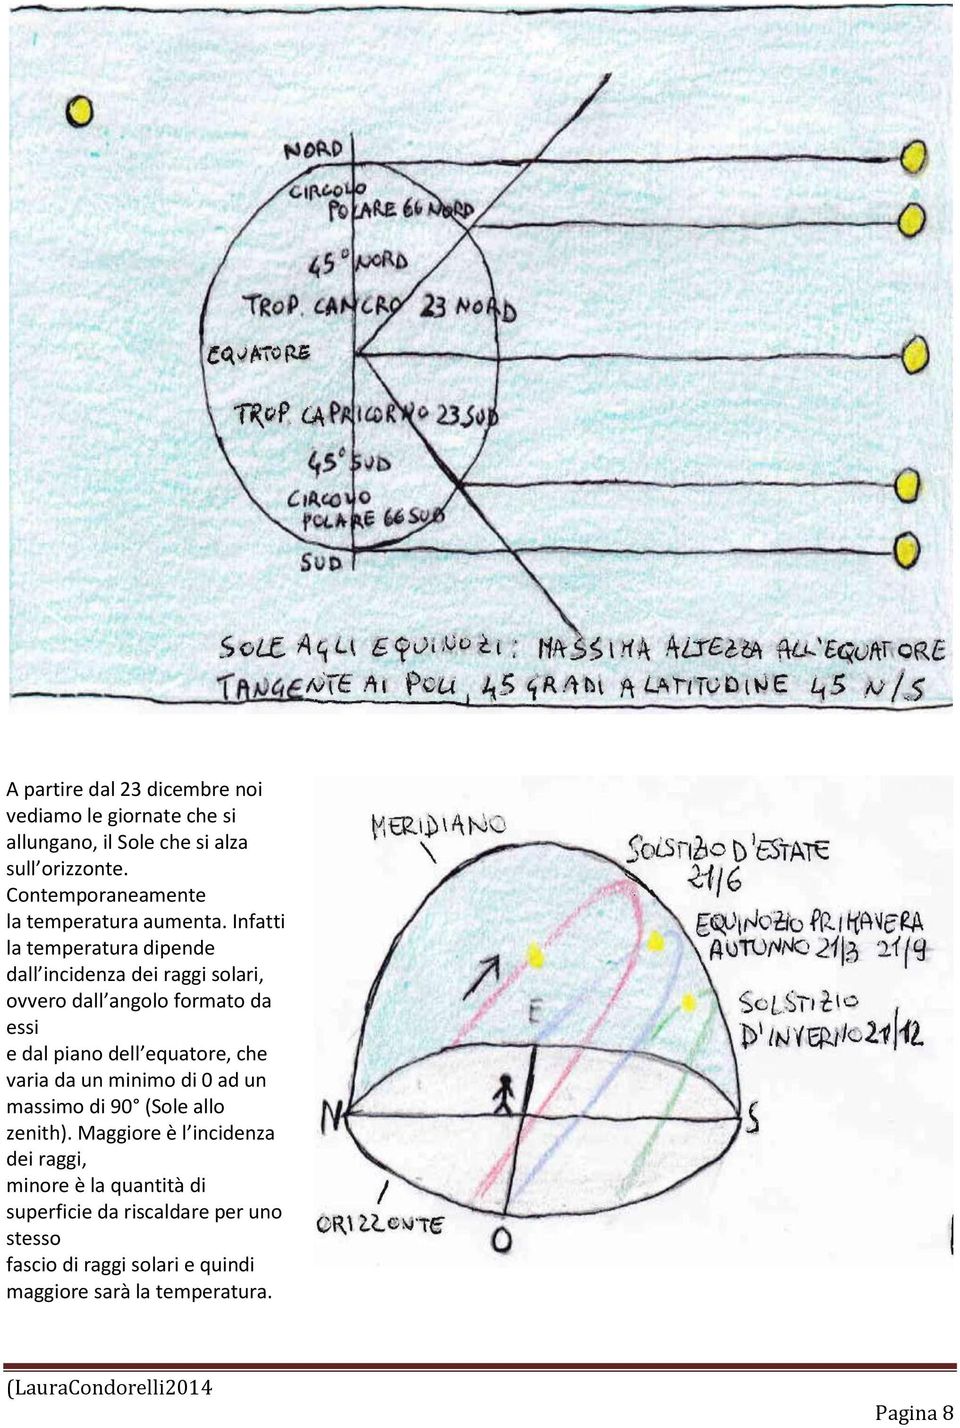 NORD
CIRCOLO
POLARE 66 NORD
45° NORD
TROP. CANCRO 23 NORD
EQUATORE
TROP. CAPRICORNO 23 SUD
45° SUD
CIRCOLO
POLARE 66 SUD
SUD
SOLE AGLI EQUINOZI: MASSIMA ALTEZZA ALL'EQUATORE
TANGENTE AI POLI, 45 GRADI A LATITUDINE 45 N/S
A partire dal 23 dicembre noi
vediamo le giornate che si
allungano, il Sole che si alza
sull'orizzonte.
Contemporaneamente
la temperatura aumenta. Infatti
la temperatura dipende
dall'incidenza dei raggi solari,
ovvero dall'angolo formato da
essi
e dal piano dell'equatore, che
varia da un minimo di 0 ad un
massimo di 90° (Sole allo
zenith). Maggiore è l'incidenza
dei raggi,
minore è la quantità di
superficie da riscaldare per uno
stesso
fascio di raggi solari e quindi
maggiore sarà la temperatura.
MERIDIANO
SOLSTIZIO D'ESTATE
21/6
EQUINOZIO PRIMAVERA
AUTUNNO 21/3 21/9
SOLSTIZIO
D'INVERNO 21/12
E
N
S
ORIZZONTE
O
(LauraCondorelli2014
Pagina 8